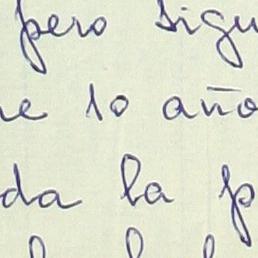 pero sigu
ne 10 año
da la p